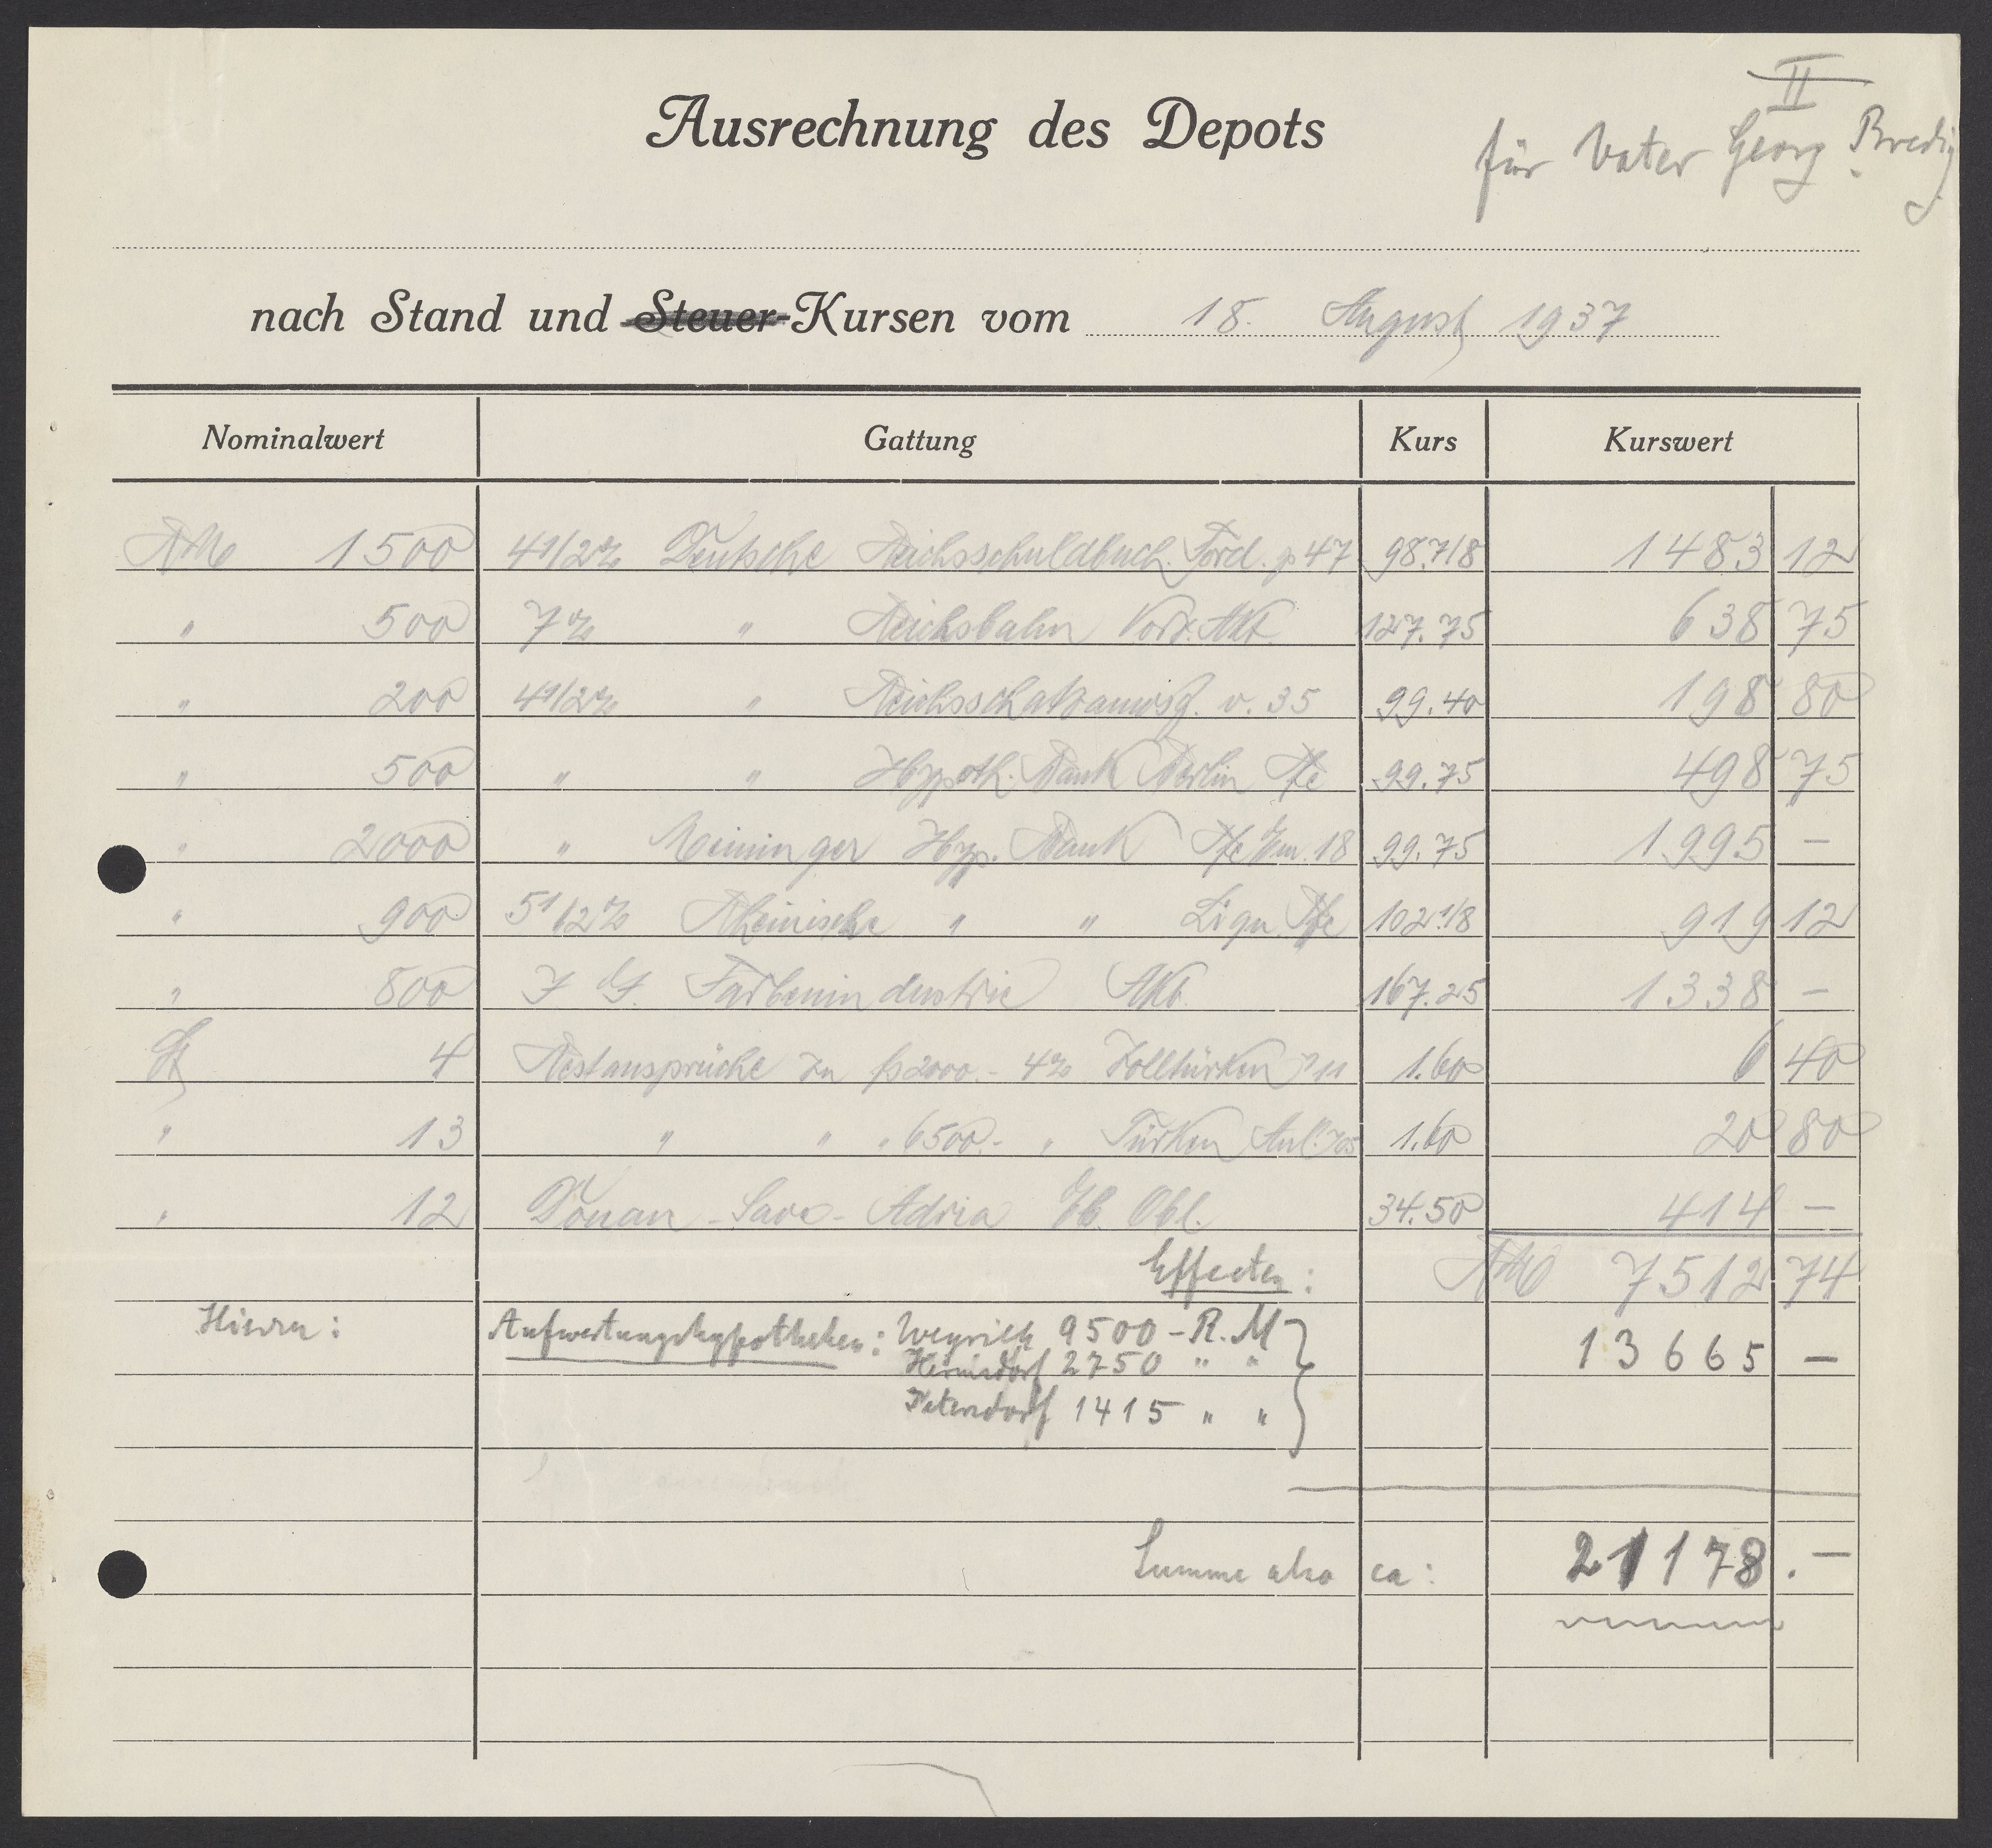 II
für Vater Georg Bredig
Ausrechnung des Depots
nach Stand und Steuer-Kursen vom 18. August 1937
Nominalwert Gattung Kurs Kurswert
RM 1500 4 1/2% Deutsche Reichsschuldbuch Ford. p 47 98.7/8 1483 12
" 500 7% " Reichsbahn Vorz. Akt. 127.75 638 75
" 200 4 1/2% " Reichsschatzanwsg. v. 35 99.40 198 80
" 500 " " Hypoth. Bank Berlin Pfe 99.75 498 75
" 2000 " Meininger Hyp. Bank Pfe Em. 18 99.75 1995 —
" 900 5 1/2% Rheinische " " Liqu. Pfe 102.1/8 919 12
" 800 I. G. Farbenindustrie Akt. 167.25 1338 —
St 4 Restansprüche zu 2000.- 4% Zolltürken 11 1.60 6 40
" 13 " " " 6500.- " Türken Anl. 05 1.60 20 80
" 12 Donau-Save-Adria Eb. Obl. 34.50 414 —
Effecten: RM 7512 74
Hierzu: Aufwertungshypotheken: Weyrich 9500 - R. M 13665 —
Hermsdorf 2750 " "
Petersdorf 1415 " "
Summe also ca: 21178.—